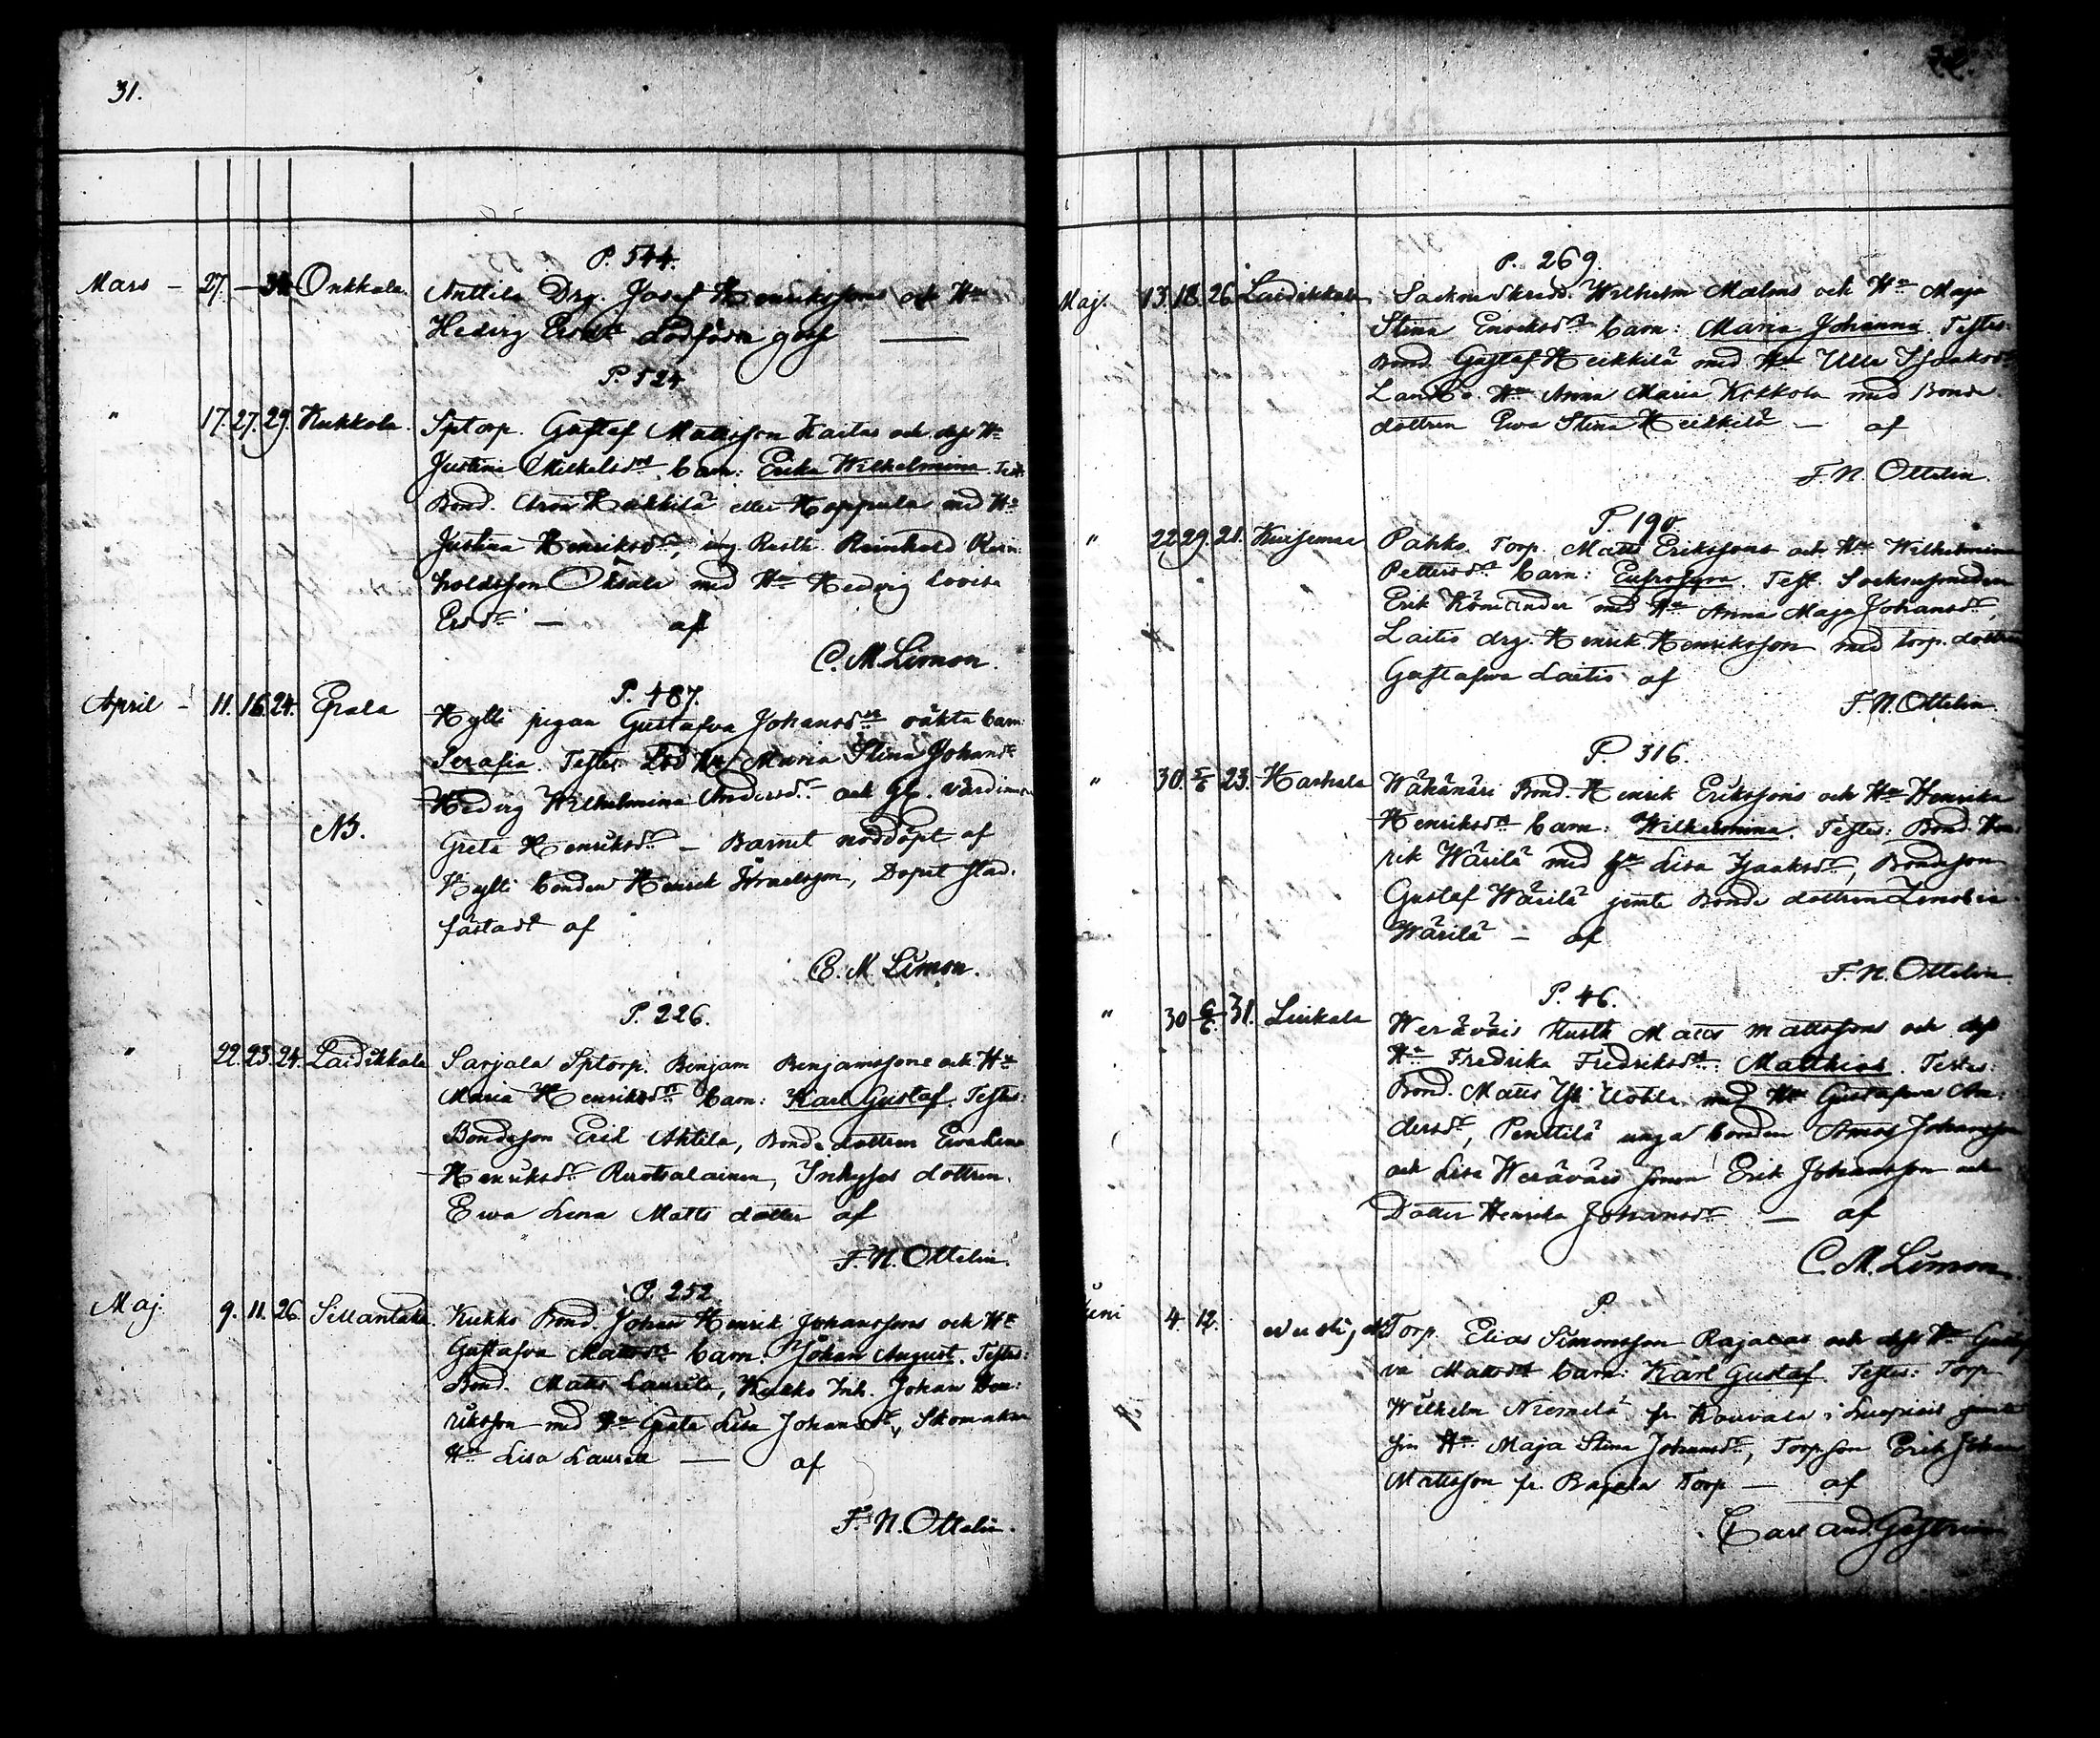 31.
P. 544.
Mars — 27. — 34 Onkkala. Anttila Drg. Josef Henrikssons och Hu
Hedvig Ersdr dödfödn gosse —
P. 524
" 17. 27. 29. Kukkola. Sptorp. Gustaf Mattsson Kartas och dess Hu
Justina Mickelsdrs barn: Erika Wilhelmina Test:
Bond. Aron Heikkilä eller Hoppula med Hu
Justina Henriksdr, ung Rusth. Reinhold Rein
holdsson Oksala med Hu Hedvig Lovisa
Ersdr — af
C. M. Limon.
P. 487.
April — 11. 16. 24. Erala Kylli pigan Gustafva Johansdrs oäkta barn:
Serafia. Testes Maria Stina Johansdr
Hedvig Wilhelmina Andersdr och Gl. värdinnan
NB. Greta Henriksdr — Barnet nöddöpt af
Kylli bonden Henrik Israelsson, Dopet stad.
fästadt af
C. M. Limon.
P. 226.
" 22. 23. 24. Laidikkala Sarjala Sptorp. Benjam Benjamssons och Hu
Maria Henriksdrs barn: Karl Gustaf. Testes:
Bondeson Erik Ahtila, Bonde dottren Eva Lena
Henriksdr Ruotsalainen, Inhyses dottren.
Ewa Lena Matts dotter af
F. N. Ottelin.
P. 252.
Maj. 9. 11. 26. Sillantaka. Kukko Bond. Johan Henrik Johanssons och Hu
Gustafva Mattsdrs barn: Johan August. Testes:
Bond. Matts Laurila, Kukko Inh. Johan Hen:
riksson med Hu Greta Lisa Johansdr, Skomakar
Hu Lisa Laurila — af
F. N. Ottelin.
P. 269.
Maj. 13. 18. 26. Laidikkala Sockne Skrädd. Wilhelm Malms och Hu Maja
Stina Enochsdrs barn: Maria Johanna. Testes:
Bond. Gustaf Heikkilä med Hu Ulla Isaksdr
Hu Anna Maria Kokkola med Bonde
dottren Ewa Stina Heikkilä — af
F. N. Ottelin.
P. 190
" 22. 29. 21. Kuisema Pahko Torp. Matts Erikssons och Hu Wilhelmina
Pettersdrs barn: Eufrosyna. Test. Socknesmeden
Erik Köminder med Hu Anna Maja Johansdr,
Laitis drg. Henrik Henriksson med torp. dottren
Gustafwa Laitis af
F. N. Ottelin
P. 316.
" 30. 5/6 23. Harhala Wähänäri Bond. Henrik Erikssons och Hu Henrika
Henriksdrs barn: Wilhelmina. Testes: Bond. Hen:
rik Wärilä med Hu Lisa Isaaksdr, Bondeson
Gustaf Wärilä jemte Bonde dottren Zenobia
Wärilä — af
F. N. Ottelin
P. 46.
" 30 6/6. 31. Liukala Werävais Rusth. Matts Mattssons och dess
Hu Fredrika Fredriksdrs: Matthias. Testes:
Bond. Matts Yli Uotila med Hu Gustafwa An:
dersdr, Penttilä unga bonden Amos Johansson
och Lisa Werävais sonen Erik Johansson och
Dotter Henrika Johansdr — af
C. M. Limon.
P.
Juni 4. 12. Torp. Elias Simonsson Rajalas och dess Hu Gustaf
va Mattsdrs barn: Karl Gustaf Testes: Torp
Wilhelm Niemelä fr. Kouvala i Luopiois jemte
sin Hu Maja Stina Johansdr, Torp. son Erik Johan
Mattsson fr. Rajala Torp — af
Carl And.